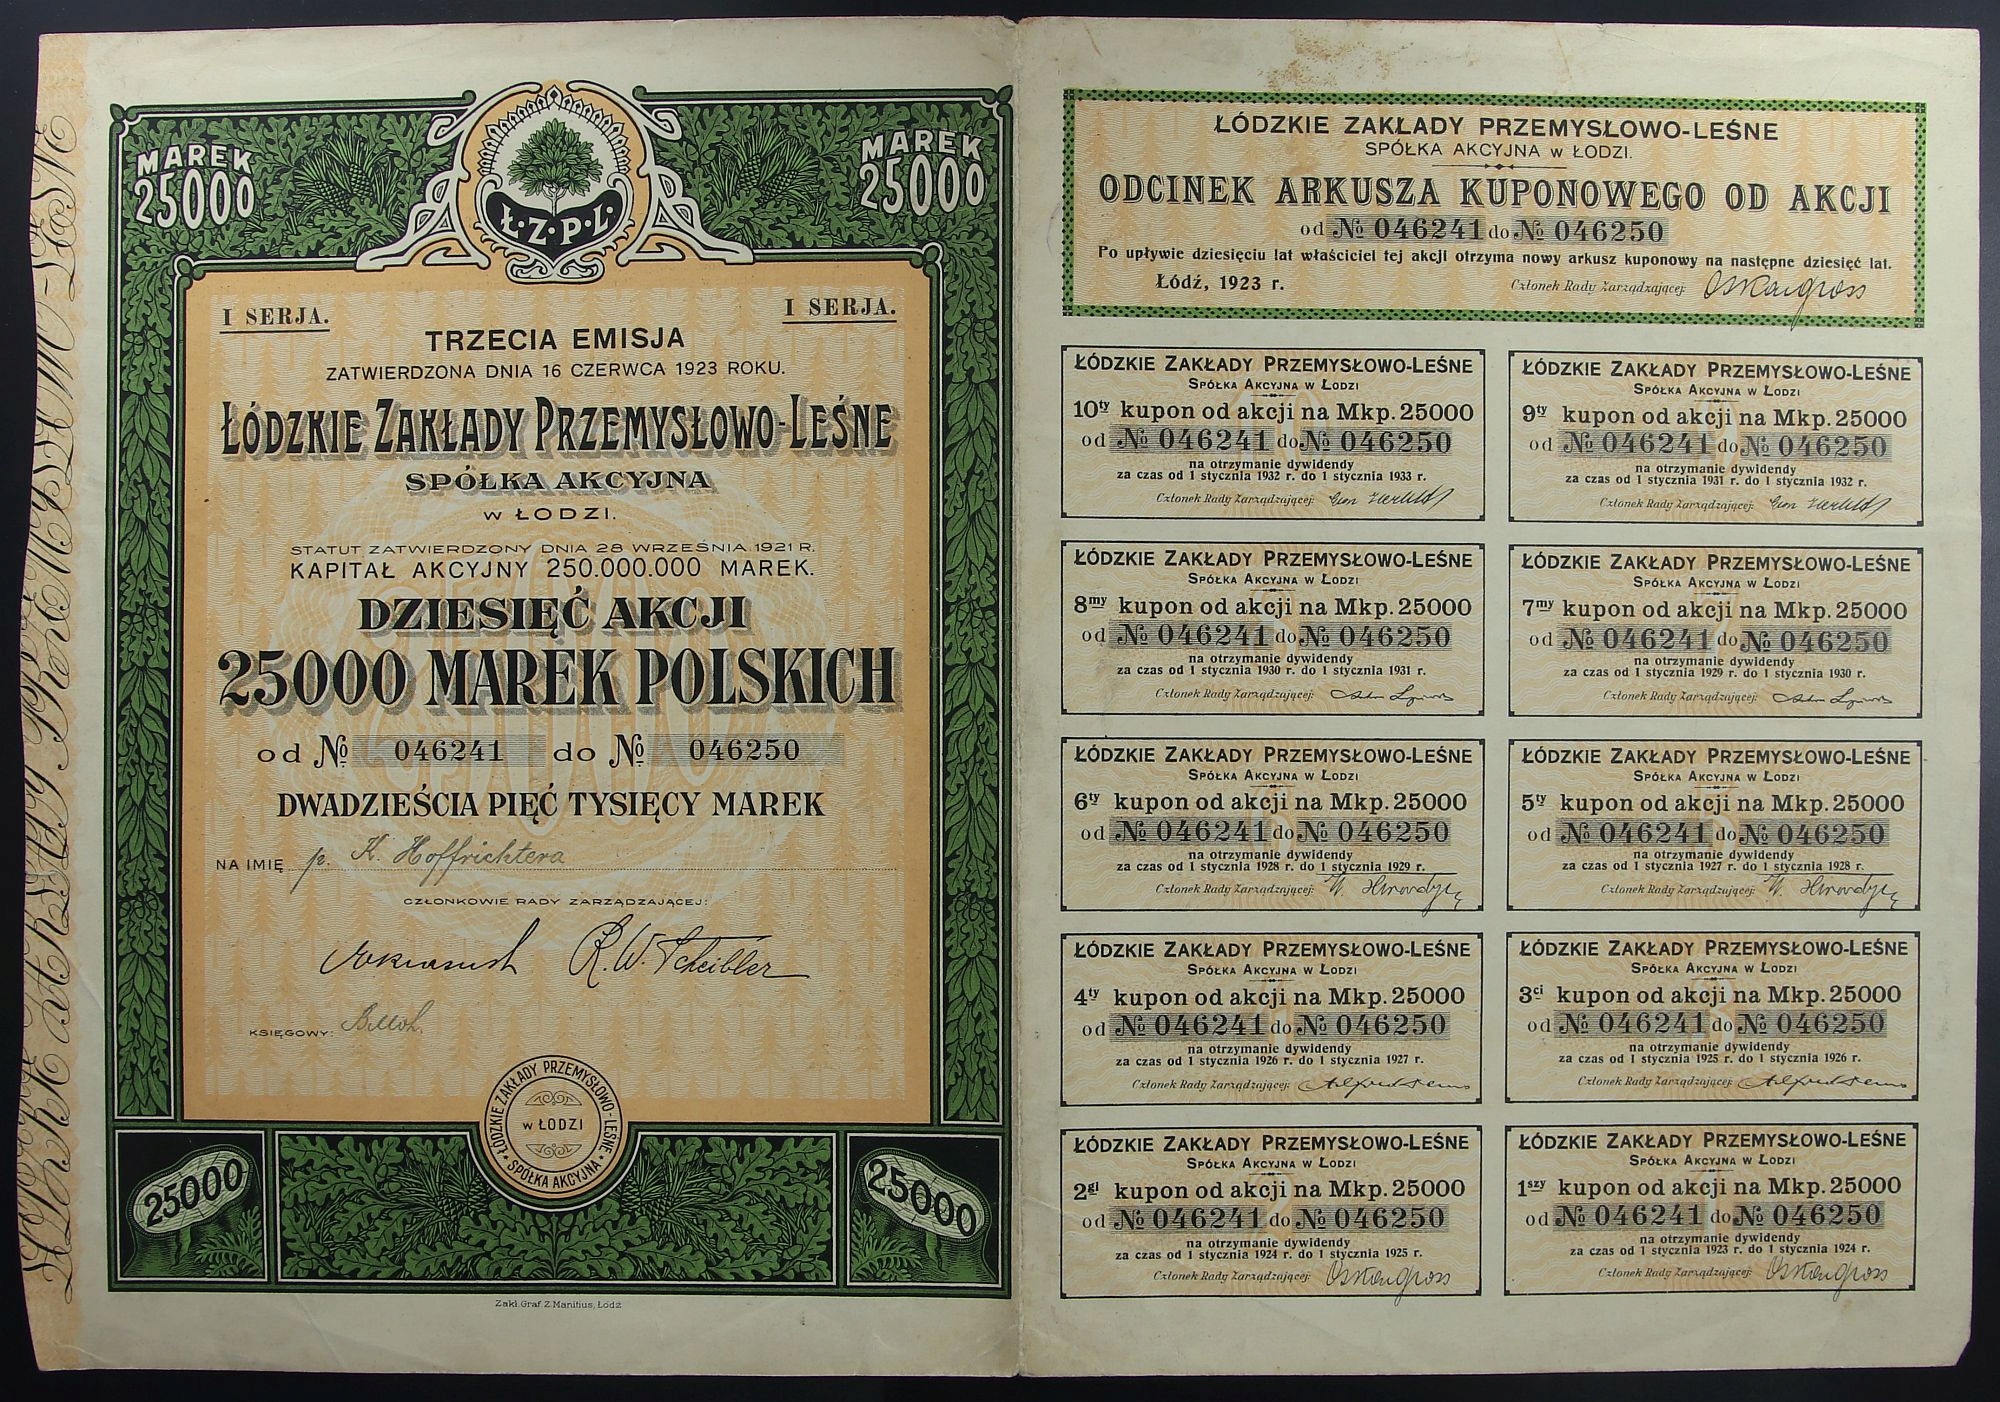 MAREK
25000
Ł.Z.P.L.
MAREK
25000
I SERJA.
I SERJA.
TRZECIA EMISJA
ZATWIERDZONA DNIA 16 CZERWCA 1923 ROKU.
ŁÓDZKIE ZAKŁADY PRZEMYSŁOWO-LEŚNE
SPÓŁKA AKCYJNA
W ŁODZI.
STATUT ZATWIERDZONY DNIA 28 WRZEŚNIA 1921 R.
KAPITAŁ AKCYJNY 250.000.000 MAREK.
DZIESIĘĆ AKCJI
25000 MAREK POLSKICH
od № 046241 do № 046250
DWADZIEŚCIA PIĘĆ TYSIĘCY MAREK
NA IMIĘ p. K. Hoffrichtera
CZŁONKOWIE RADY ZARZĄDZAJĄCEJ:
R. W. Scheibler
KSIĘGOWY:
ŁÓDZKIE ZAKŁADY PRZEMYSŁOWO-LEŚNE
w ŁODZI
SPÓŁKA AKCYJNA
25000
25000
Zakł. Graf. Z. Manitius, Łódź
ŁÓDZKIE ZAKŁADY PRZEMYSŁOWO-LEŚNE
SPÓŁKA AKCYJNA w ŁODZI.
ODCINEK ARKUSZA KUPONOWEGO OD AKCJI
od № 046241 do № 046250
Po upływie dziesięciu lat właściciel tej akcji otrzyma nowy arkusz kuponowy na następne dziesięć lat.
Łódź, 1923 r. Członek Rady Zarządzającej:
ŁÓDZKIE ZAKŁADY PRZEMYSŁOWO-LEŚNE
SPÓŁKA AKCYJNA W ŁODZI
10ty kupon od akcji na Mkp. 25000
od № 046241 do № 046250
na otrzymanie dywidendy
za czas od 1 stycznia 1932 r. do 1 stycznia 1933 r.
Członek Rady Zarządzającej:
ŁÓDZKIE ZAKŁADY PRZEMYSŁOWO-LEŚNE
SPÓŁKA AKCYJNA W ŁODZI
9ty kupon od akcji na Mkp. 25000
od № 046241 do № 046250
na otrzymanie dywidendy
za czas od 1 stycznia 1931 r. do 1 stycznia 1932 r.
Członek Rady Zarządzającej:
ŁÓDZKIE ZAKŁADY PRZEMYSŁOWO-LEŚNE
SPÓŁKA AKCYJNA W ŁODZI
8my kupon od akcji na Mkp. 25000
od № 046241 do № 046250
na otrzymanie dywidendy
za czas od 1 stycznia 1930 r. do 1 stycznia 1931 r.
Członek Rady Zarządzającej:
ŁÓDZKIE ZAKŁADY PRZEMYSŁOWO-LEŚNE
SPÓŁKA AKCYJNA W ŁODZI
7my kupon od akcji na Mkp. 25000
od № 046241 do № 046250
na otrzymanie dywidendy
za czas od 1 stycznia 1929 r. do 1 stycznia 1930 r.
Członek Rady Zarządzającej:
ŁÓDZKIE ZAKŁADY PRZEMYSŁOWO-LEŚNE
SPÓŁKA AKCYJNA W ŁODZI
6ty kupon od akcji na Mkp. 25000
od № 046241 do № 046250
na otrzymanie dywidendy
za czas od 1 stycznia 1928 r. do 1 stycznia 1929 r.
Członek Rady Zarządzającej:
ŁÓDZKIE ZAKŁADY PRZEMYSŁOWO-LEŚNE
SPÓŁKA AKCYJNA W ŁODZI
5ty kupon od akcji na Mkp. 25000
od № 046241 do № 046250
na otrzymanie dywidendy
za czas od 1 stycznia 1927 r. do 1 stycznia 1928 r.
Członek Rady Zarządzającej:
ŁÓDZKIE ZAKŁADY PRZEMYSŁOWO-LEŚNE
SPÓŁKA AKCYJNA W ŁODZI
4ty kupon od akcji na Mkp. 25000
od № 046241 do № 046250
na otrzymanie dywidendy
za czas od 1 stycznia 1926 r. do 1 stycznia 1927 r.
Członek Rady Zarządzającej:
ŁÓDZKIE ZAKŁADY PRZEMYSŁOWO-LEŚNE
SPÓŁKA AKCYJNA W ŁODZI
3ci kupon od akcji na Mkp. 25000
od № 046241 do № 046250
na otrzymanie dywidendy
za czas od 1 stycznia 1925 r. do 1 stycznia 1926 r.
Członek Rady Zarządzającej:
ŁÓDZKIE ZAKŁADY PRZEMYSŁOWO-LEŚNE
SPÓŁKA AKCYJNA W ŁODZI
2gi kupon od akcji na Mkp. 25000
od № 046241 do № 046250
na otrzymanie dywidendy
za czas od 1 stycznia 1924 r. do 1 stycznia 1925 r.
Członek Rady Zarządzającej:
ŁÓDZKIE ZAKŁADY PRZEMYSŁOWO-LEŚNE
SPÓŁKA AKCYJNA W ŁODZI
1szy kupon od akcji na Mkp. 25000
od № 046241 do № 046250
na otrzymanie dywidendy
za czas od 1 stycznia 1923 r. do 1 stycznia 1924 r.
Członek Rady Zarządzającej: